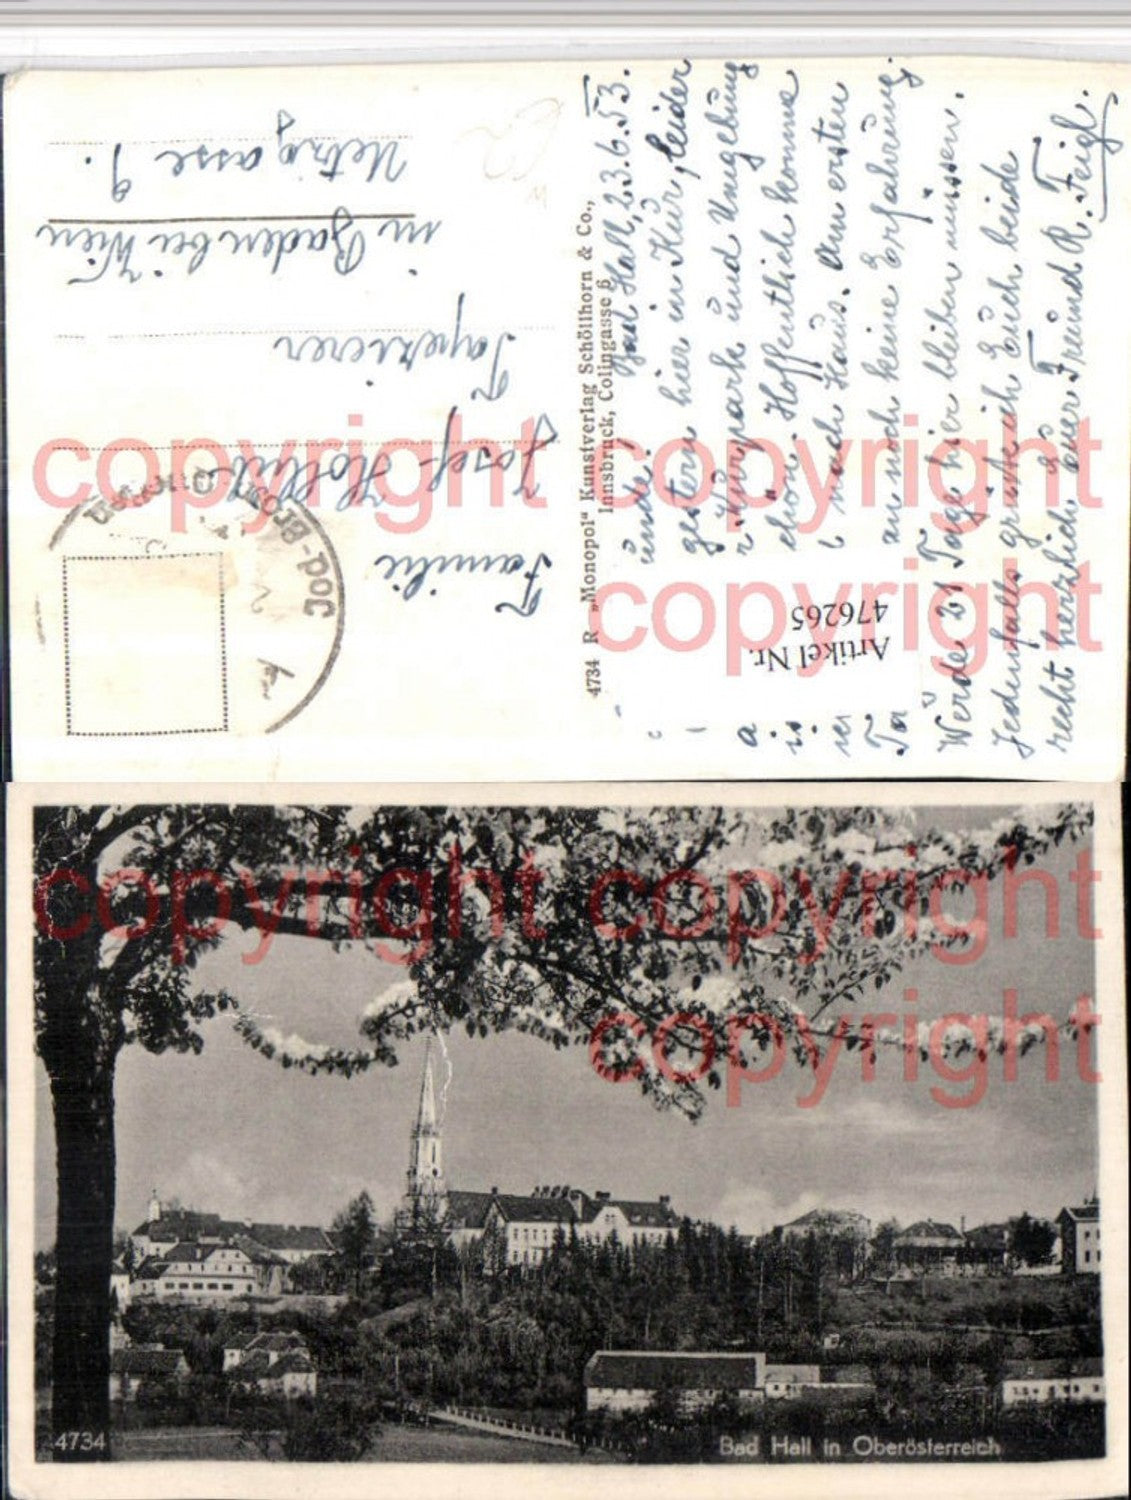 Bad Hall, 23.6.53.
unde!
gestern hier in Kur, leider
r Kurpark und Umgebung
chön. Hoffentlich komme
nach Haus. Am ersten
au noch keine Erfahrung.
Werde 21 Tage hier bleiben müssen.
Jedenfalls grüße ich Euch beide
recht herzlich als euer Freund R. Feigl.
Artikel Nr.
476265
4734 R „Monopol“ Kunstverlag Schöllhorn & Co.,
Innsbruck, Colingasse 6
Familie
Josef
Tapezierer
in Baden bei Wien
gasse 9.
copyright copyright
copyright
copyright copyright
copyright
4734
Bad Hall in Oberösterreich